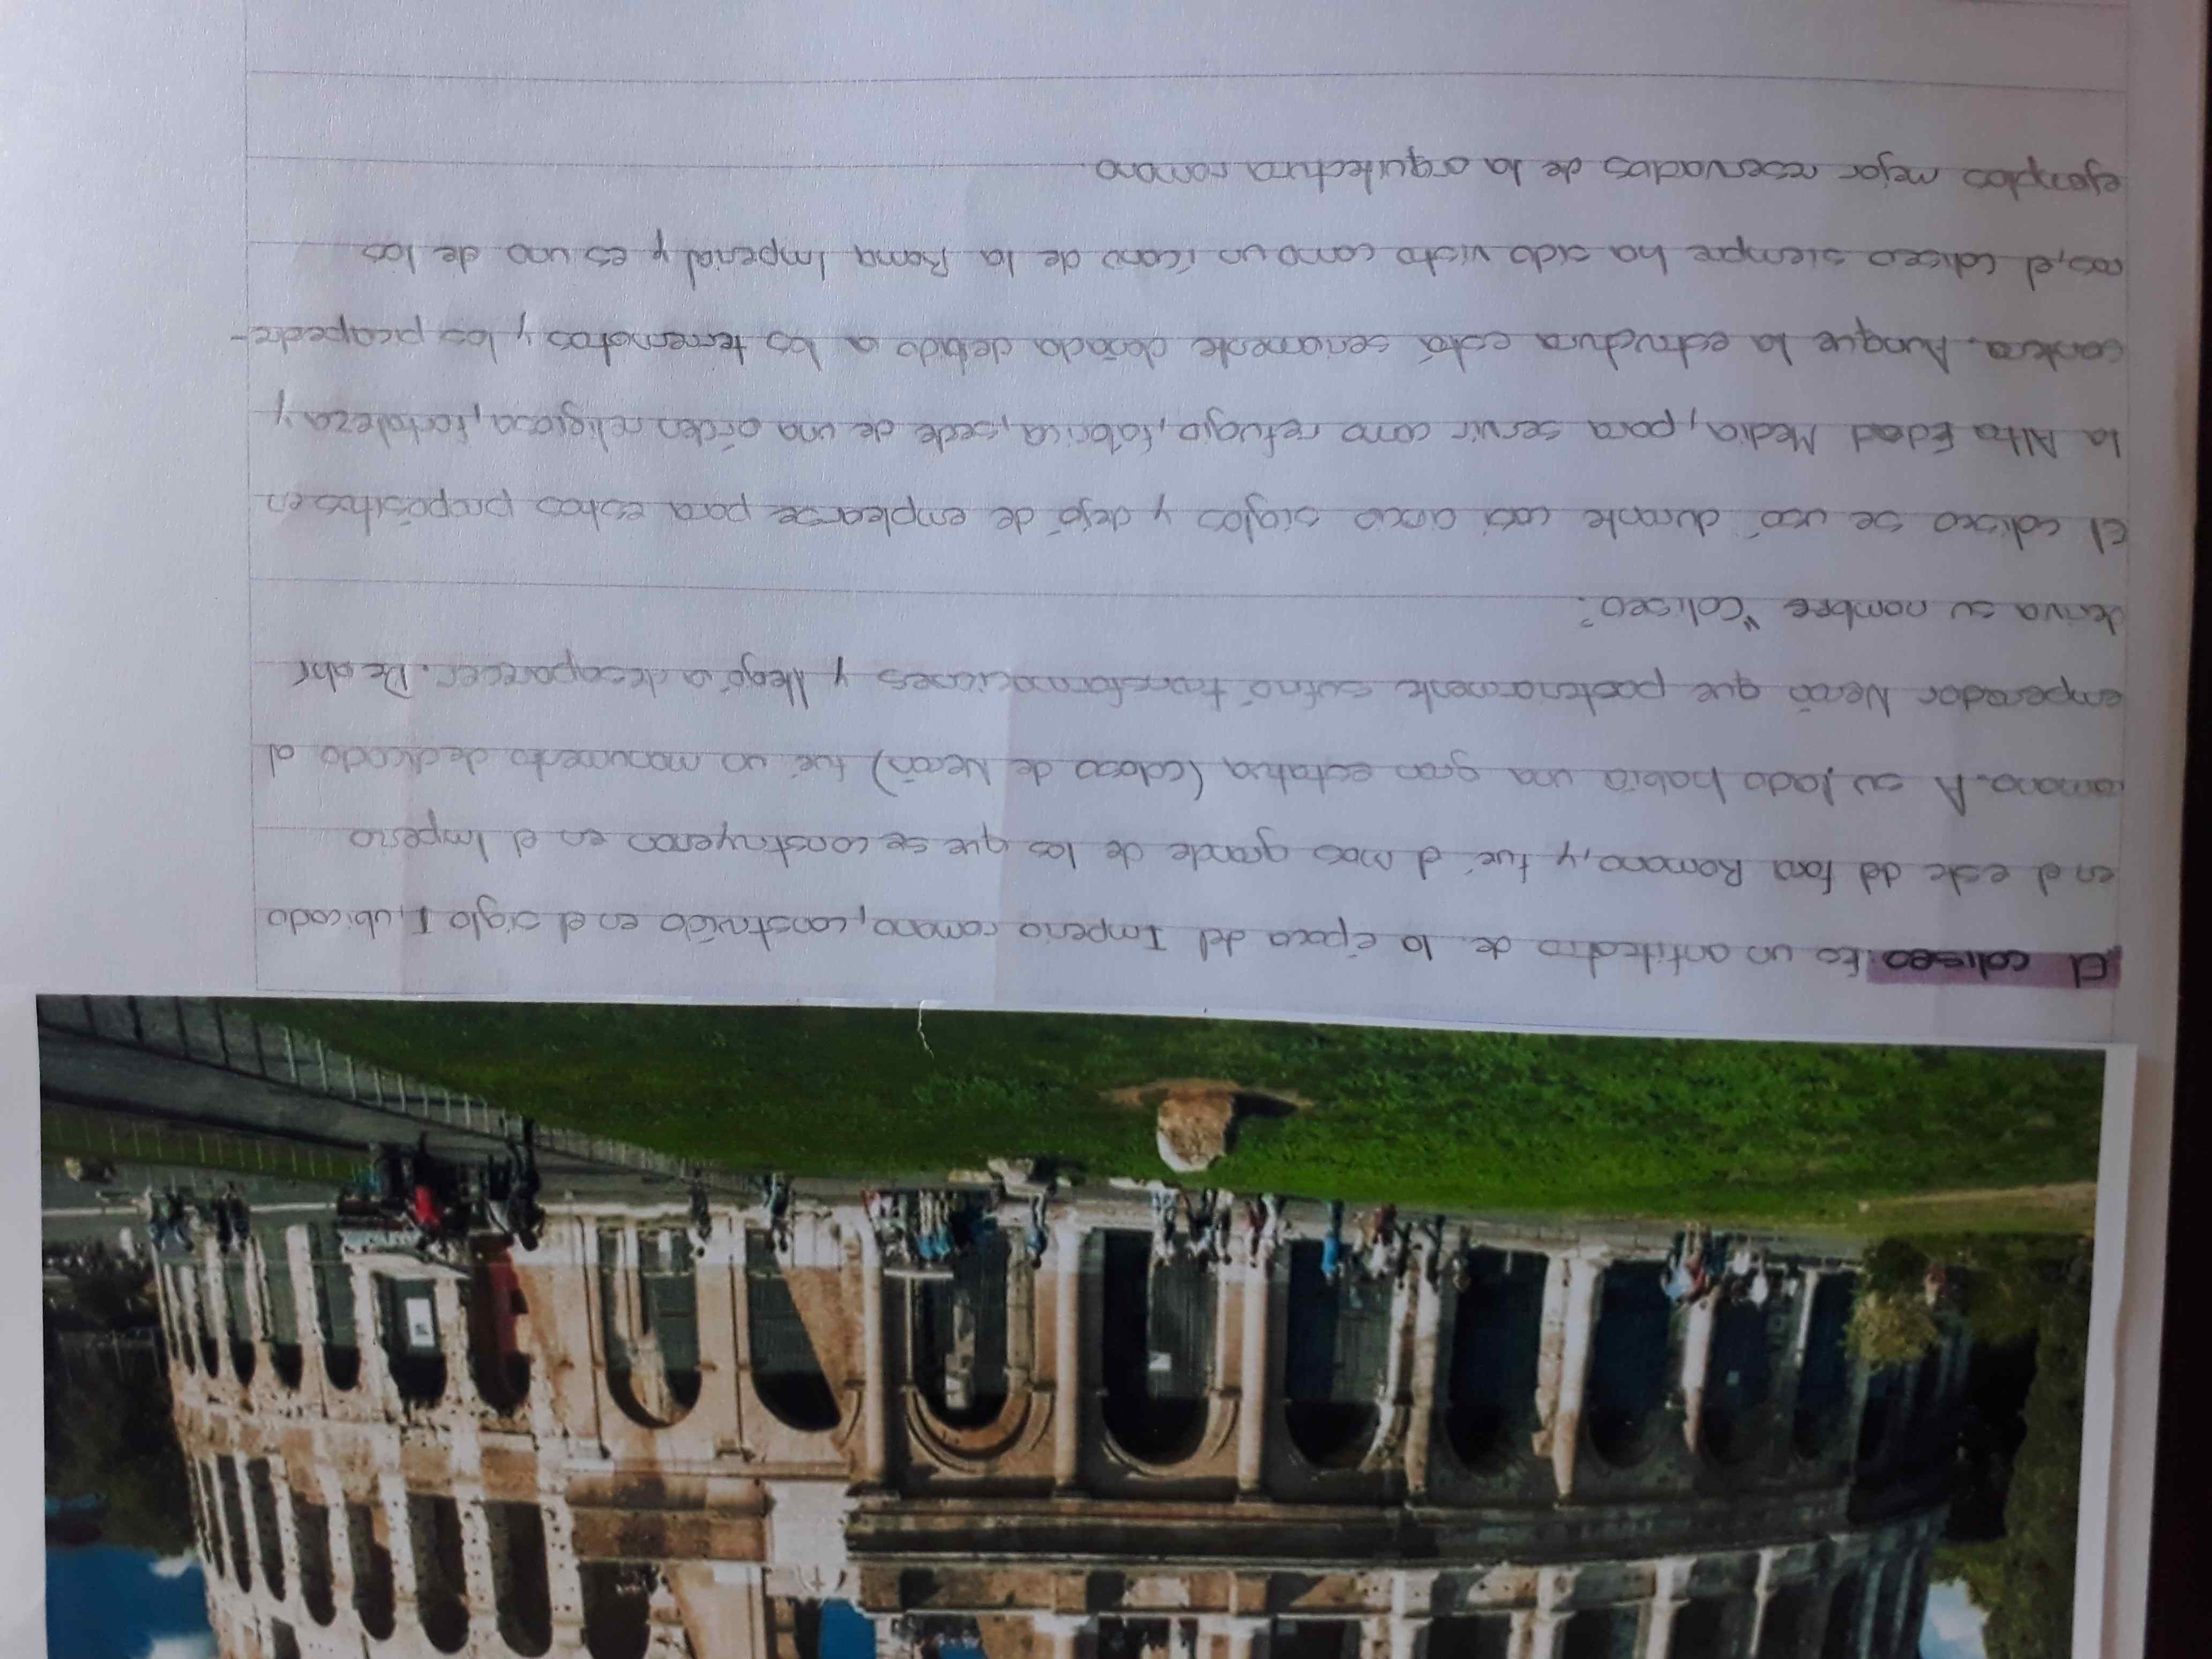 El coliseo: Es un anfiteatro de la época del Imperio romano, construido en el siglo I, ubicado
en el este del foro Romano, y fué el mas grande de los que se construyeron en el Imperio
romano. A su lado había una gran estatua (coloso de Nerón) fué un monumento dedicado al
emperador Nerón que posteriormente sufrió transformaciones y llegó a desaparecer. De ahí
deriva su nombre "Coliseo".
El coliseo se usó durante casi cinco siglos y dejó de emplearse para estos propósitos en
la Alta Edad Media, para servir como refugio, fábrica, sede de una órden religiosa, fortaleza y
cantera. Aunque la estructura está seriamente dañada debido a los terremotos y los picapedre-
ros, el coliseo siempre ha sido visto como un ícono de la Roma Imperial y es uno de los
ejemplos mejor reservados de la arquitectura romana.